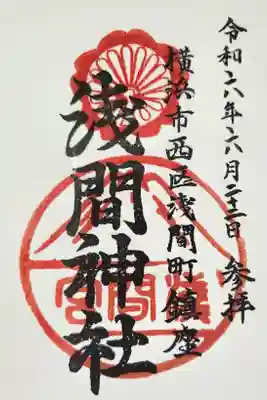 令和六年六月二十二日 参拝
横浜市西区浅間町鎮座
浅間神社